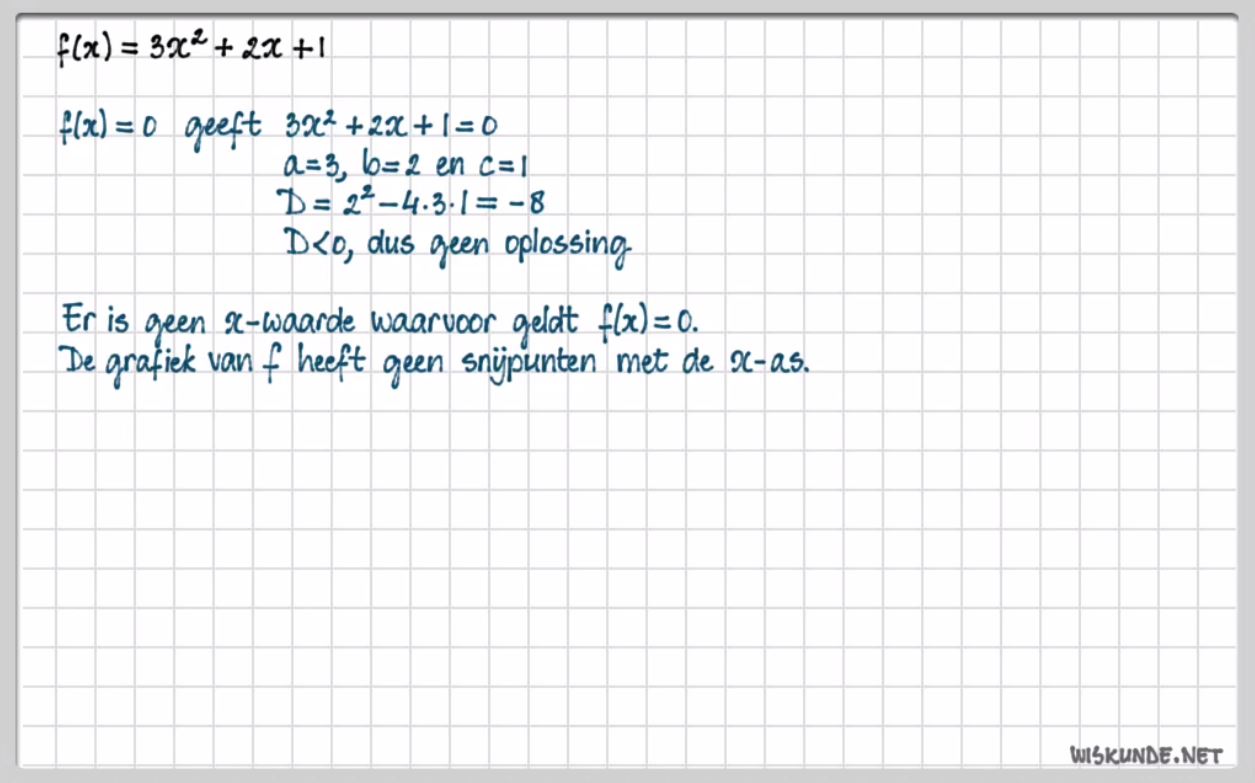 f(x) = 3x² + 2x + 1
f(x) = 0 geeft 3x² + 2x + 1 = 0
a=3, b=2 en c=1
D = 2² – 4·3·1 = –8
D<0, dus geen oplossing
Er is geen x-waarde waarvoor geldt f(x)=0.
De grafiek van f heeft geen snijpunten met de x-as.
WISKUNDE.NET